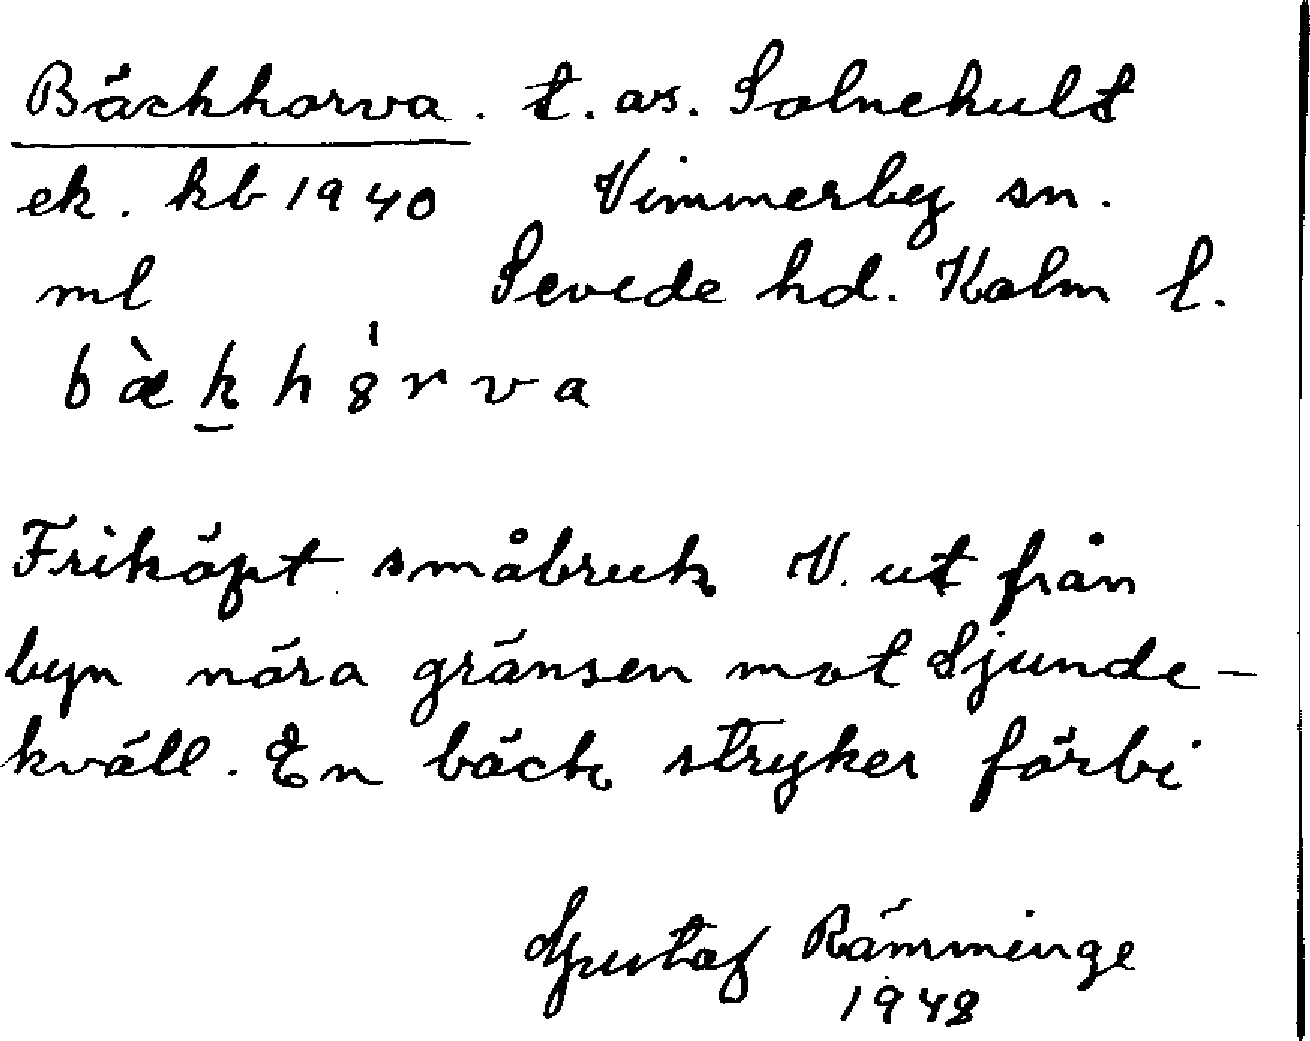 Bäckhorva. t. as. Solnehult
ek. kb 1940 Vimmerby sn.
ml Sevede hd. Kalm l.
b æ̀ k̲ h 8̍ r v a
Friköpt småbruk V. ut från
byn nära gränsen mot Sjunde-
kväll. En bäck stryker förbi
Gustaf Rämminge
1948